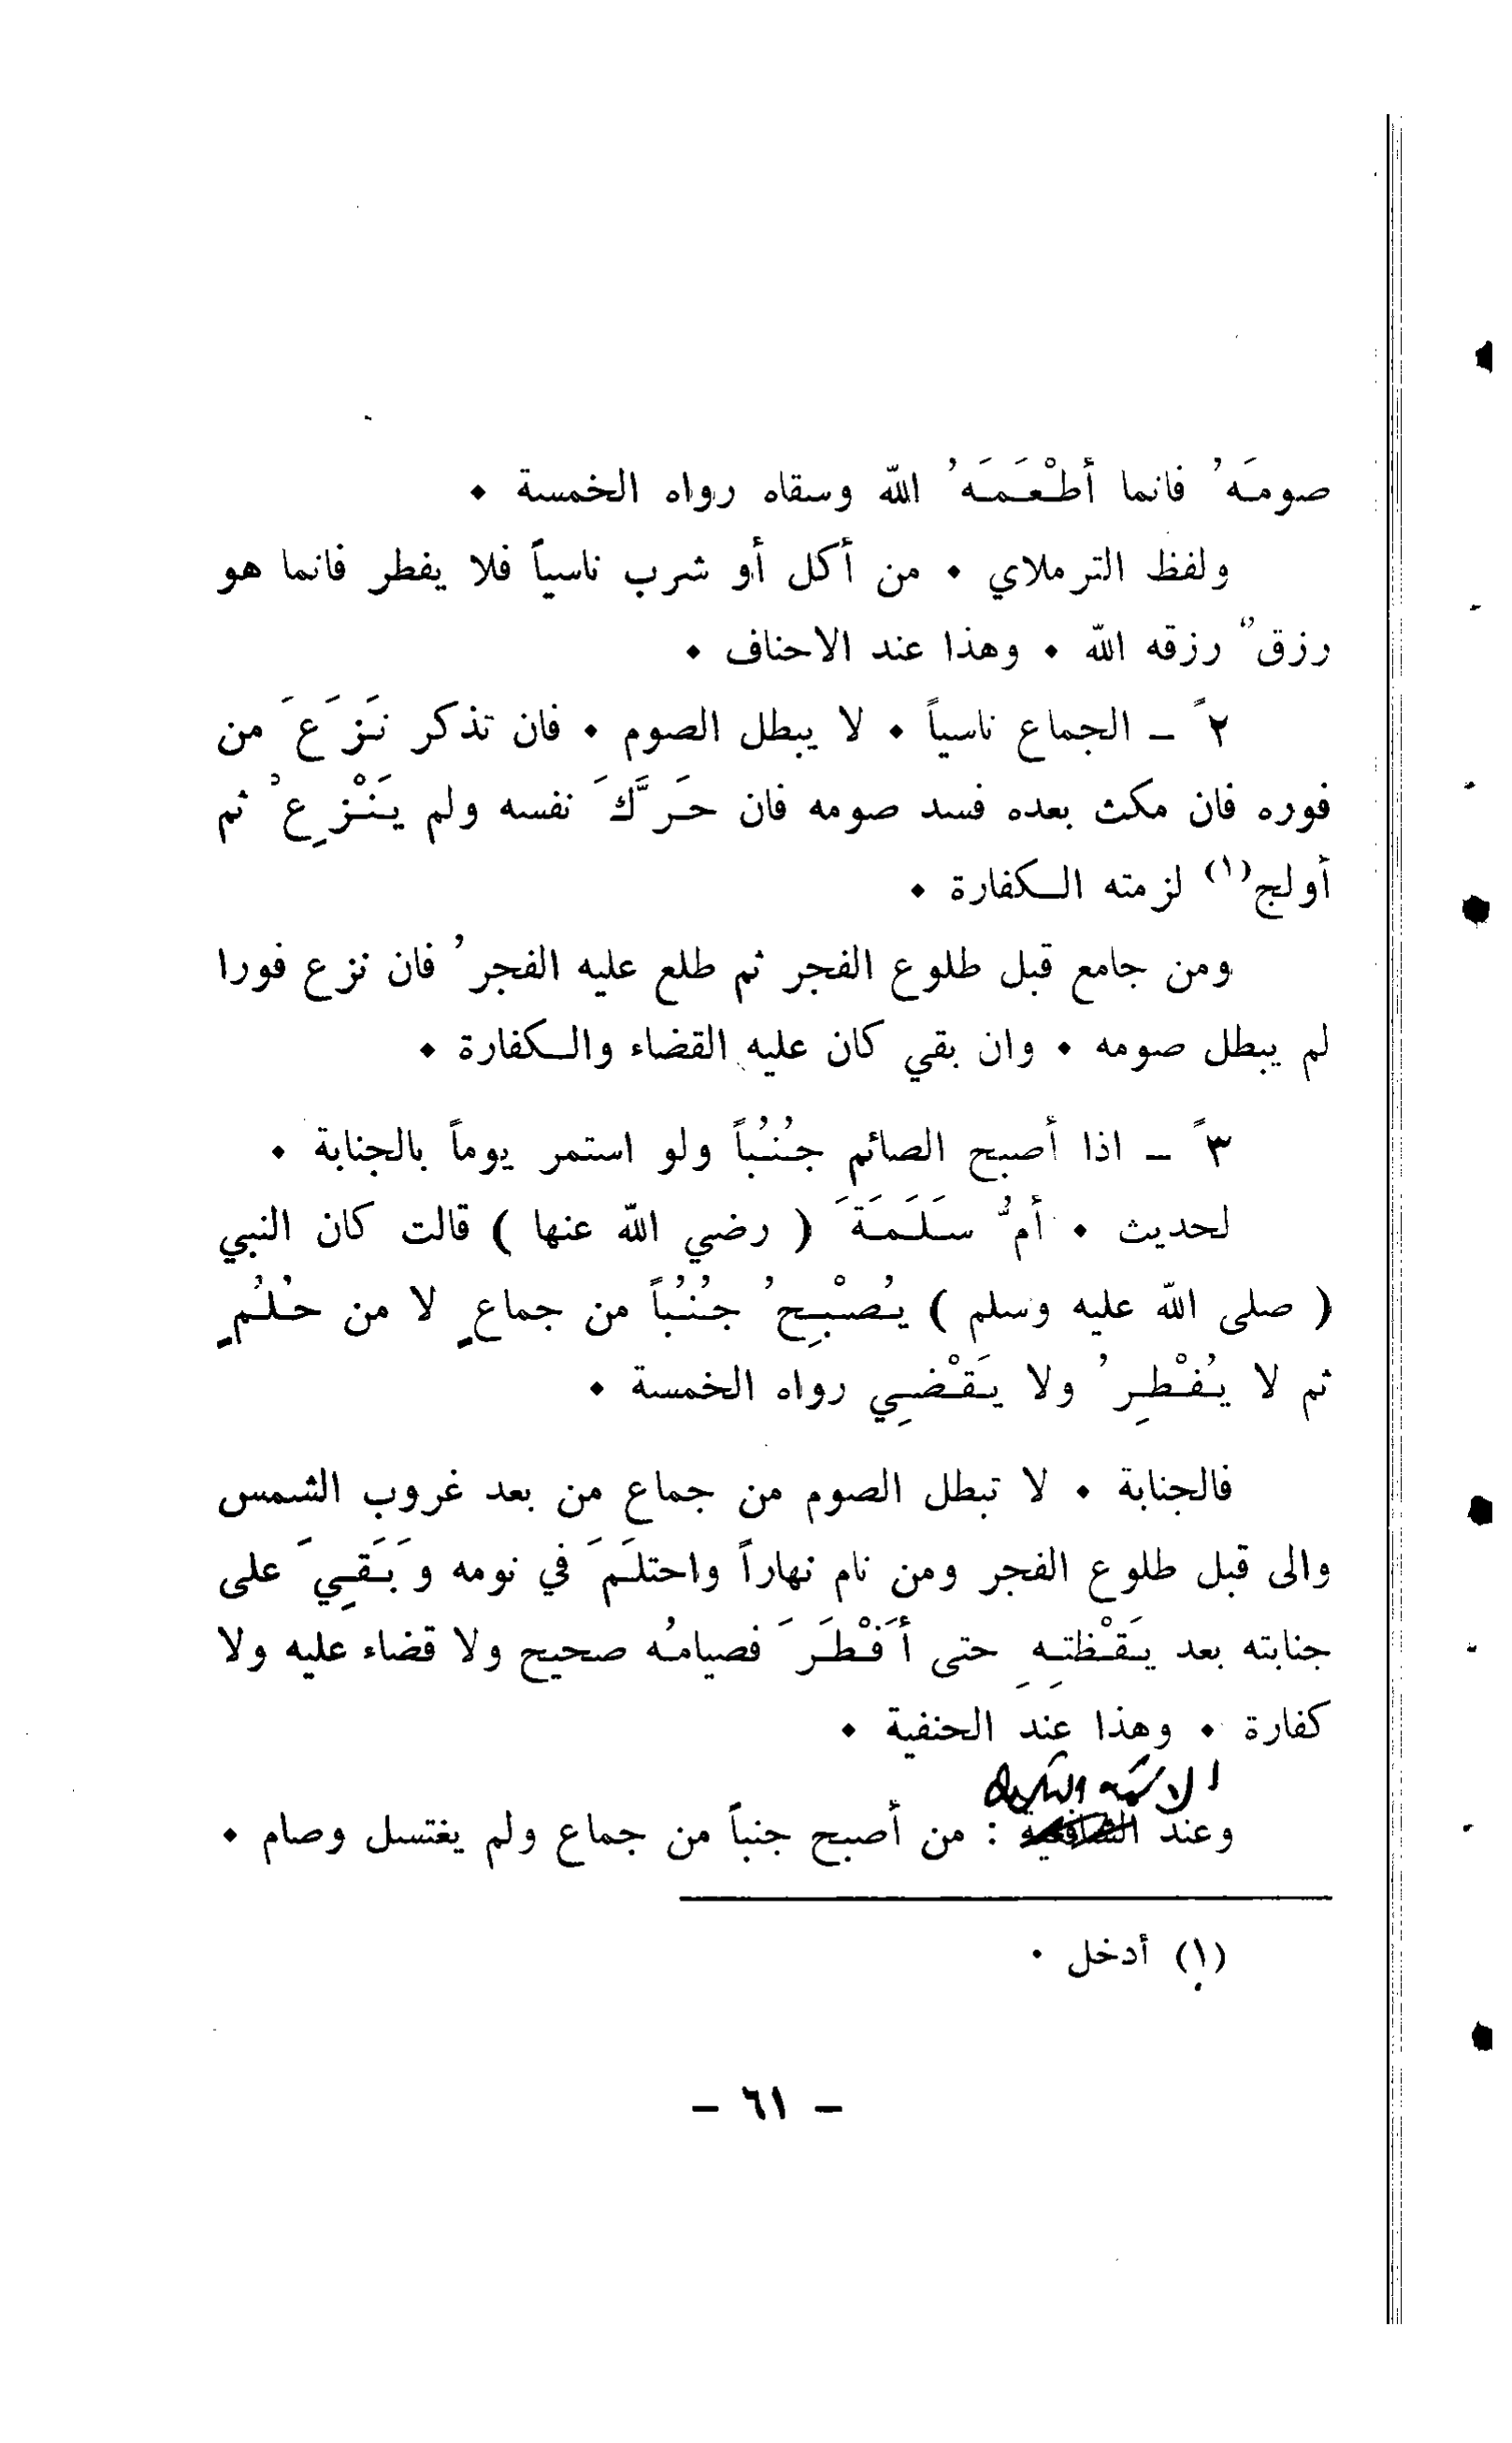 صومَهُ فانما أطْعَمَهُ الله وسقاه رواه الخمسة ٠
ولفظ الترملاي ٠ من أكل أو شرب ناسياً فلا يفطر فانما هو
رزقٌ رزقه الله ٠ وهذا عند الاحناف ٠
٢ً ـ الجماع ناسياً ٠ لا يبطل الصوم ٠ فان تذكر نَزَعَ من
فوره فان مكث بعده فسد صومه فان حَرَّكَ نفسه ولم يَنْزِعْ ثم
أولج(١) لزمته الكفارة ٠
ومن جامع قبل طلوع الفجر ثم طلع عليه الفجرُ فان نزع فورا
لم يبطل صومه ٠ وان بقي كان عليه القضاء والكفارة ٠
٣ً ـ اذا أصبح الصائم جُنُباً ولو استمر يوماً بالجنابة ٠
لحديث ٠ أمُّ سَلَمَةَ ( رضي الله عنها ) قالت كان النبي
( صلى الله عليه وسلم ) يُصْبِحُ جُنُباً من جماعٍ لا من حُلُمٍ
ثم لا يُفْطِرُ ولا يَقْضِي رواه الخمسة ٠
فالجنابة ٠ لا تبطل الصوم من جماع من بعد غروب الشمس
والى قبل طلوع الفجر ومن نام نهاراً واحتلَمَ في نومه وَبَقِيَ على
جنابته بعد يَقْظتِهِ حتى أفْطَرَ فصيامُه صحيح ولا قضاء عليه ولا
كفارة ٠ وهذا عند الحنفية ٠
الائمة الثلاثة
وعند الشافعية : من أصبح جنباً من جماع ولم يغتسل وصام ٠
(١) أدخل ٠
ـ ٦١ ـ